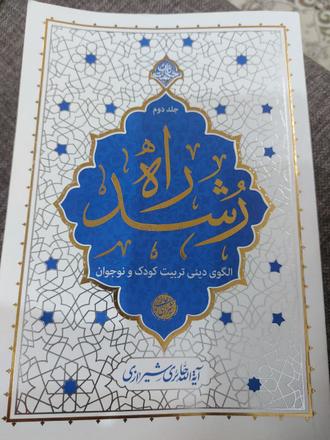 جلد دوم
راه
رشد
الگوی دینی تربیت کودک و نوجوان
آیة الله حائری شیرازی